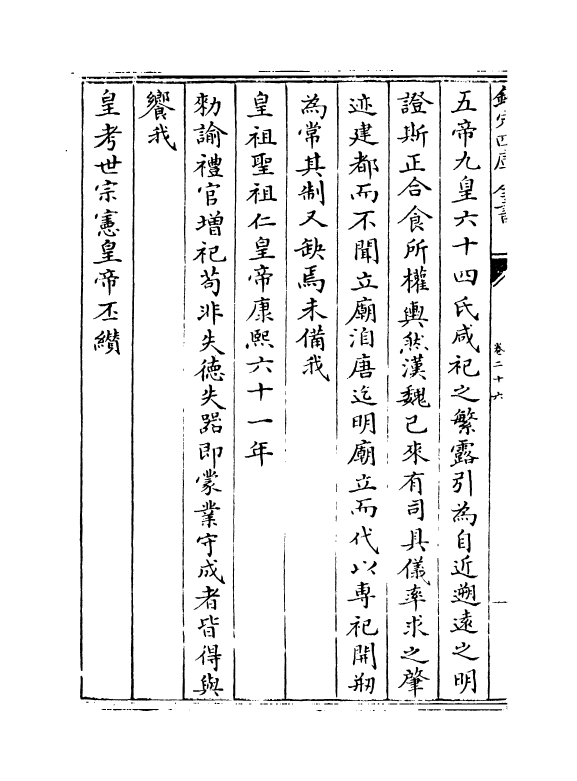 欽定四庫全書
卷二十六
一
五帝九皇六十四氏咸祀之繁露引為自近遡遠之明
證斯正合食所權輿然漢魏已來有司具儀率求之肇
迹建都而不聞立廟洎唐迄明廟立而代以專祀開刱
為常其制又缺焉未備我
皇祖聖祖仁皇帝康熙六十一年
勅諭禮官增祀苟非失徳失器即蒙業守成者皆得與
饗我
皇考世宗憲皇帝丕纘